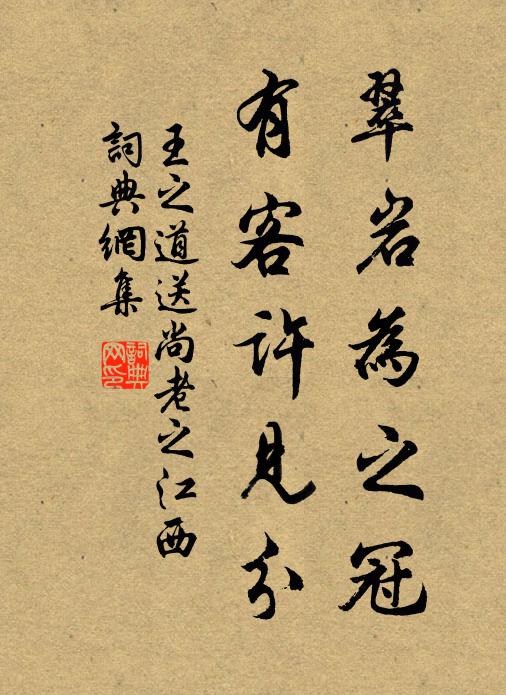 翠岩為之冠
有客許見分
王之道送尚老之江西
詞典網集
詞典網印